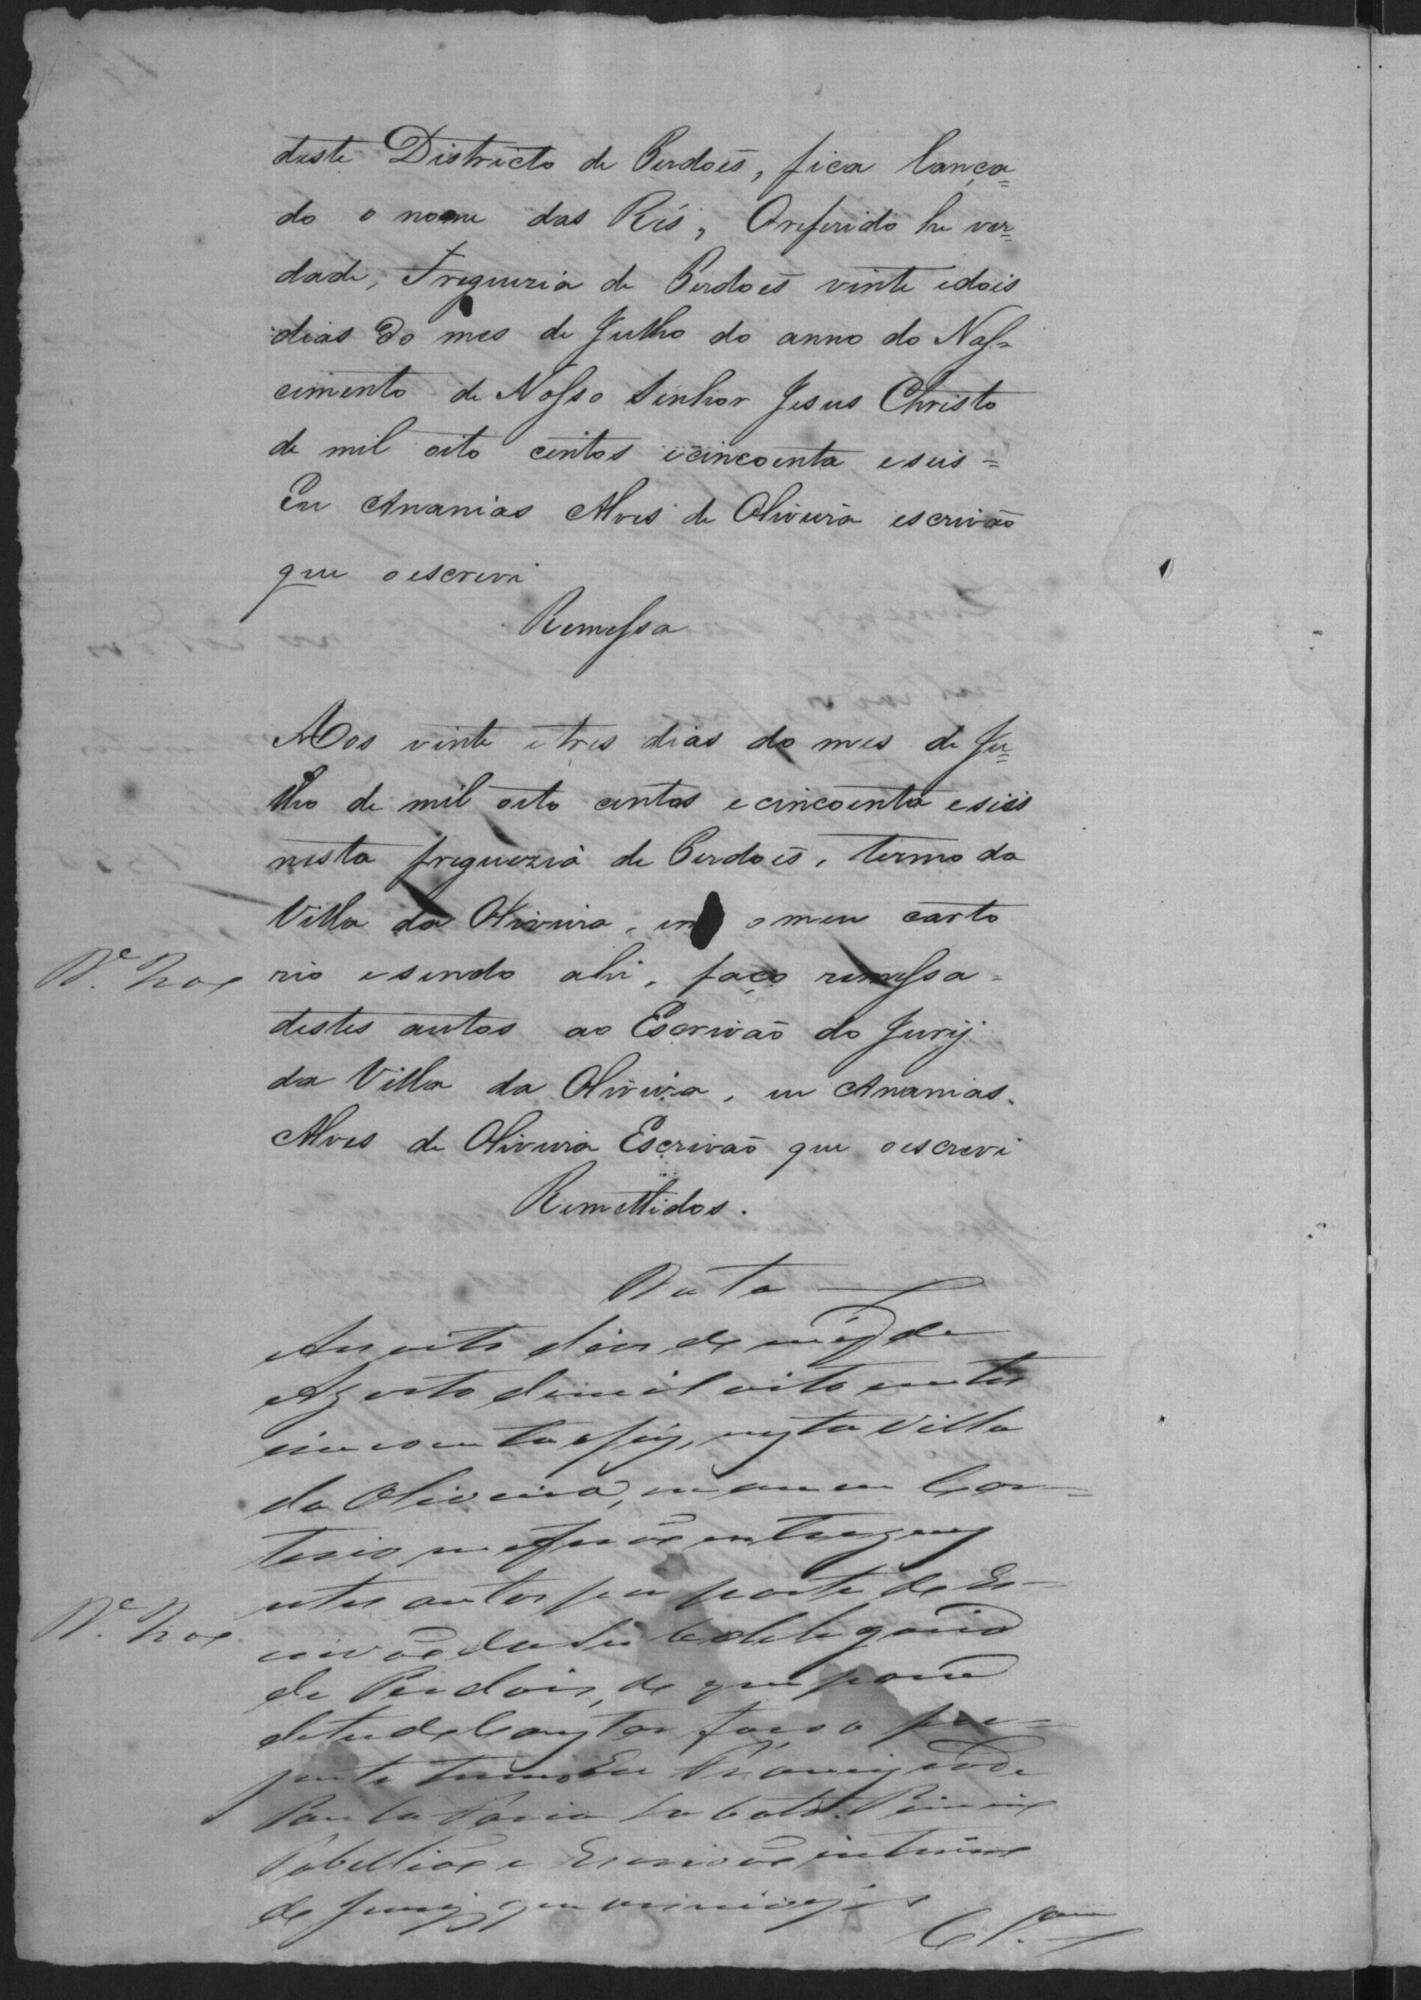 deste Districto de Perdoẽs, fica lança=
do o nome das Rés, Oreferido he ver=
dade, Freguezia de Perdoẽs vinte edois
dias do mes de Julho do anno do Nas-
cimento de Nosso Senhor Jesus Christo
de mil oito centos ecincoenta eseis =
Eu Ananias Alves de Oliveira escrivaõ
que oescrevi
Remessa
Aos vinte etres dias do mes de Ju=
lho de mil oito centos ecincoenta eseis
nesta freguezia de Perdoẽs, termo da
Villa da Oliveira, em omeu carto
rio esendo ahi, faço remessa =
destes autos ao Escrivaõ do Jury
da Villa da Oliveira, eu Ananias
Alves de Oliveira Escrivaõ que oescrevi
Remettidos.
Data
Aos oito dias do mez de
Agosto demil oito centos
cincoenta eseis, nesta Villa
da Oliveira, em meu Car-
torio me foraõ entregues
estes autos por parte do Es-
crivaõ da Subdelegacia
de Perdois, de que para
constar faço o pre-
sente termo Eu Francisco de
Paula
Tabelliaõ e Escrivaõ interino
do Jury que escrevi